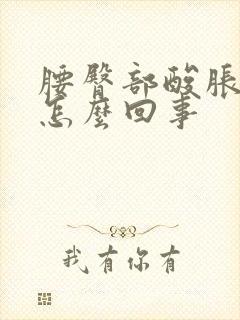 腰臀部酸脹
怎麼回事
我有你有